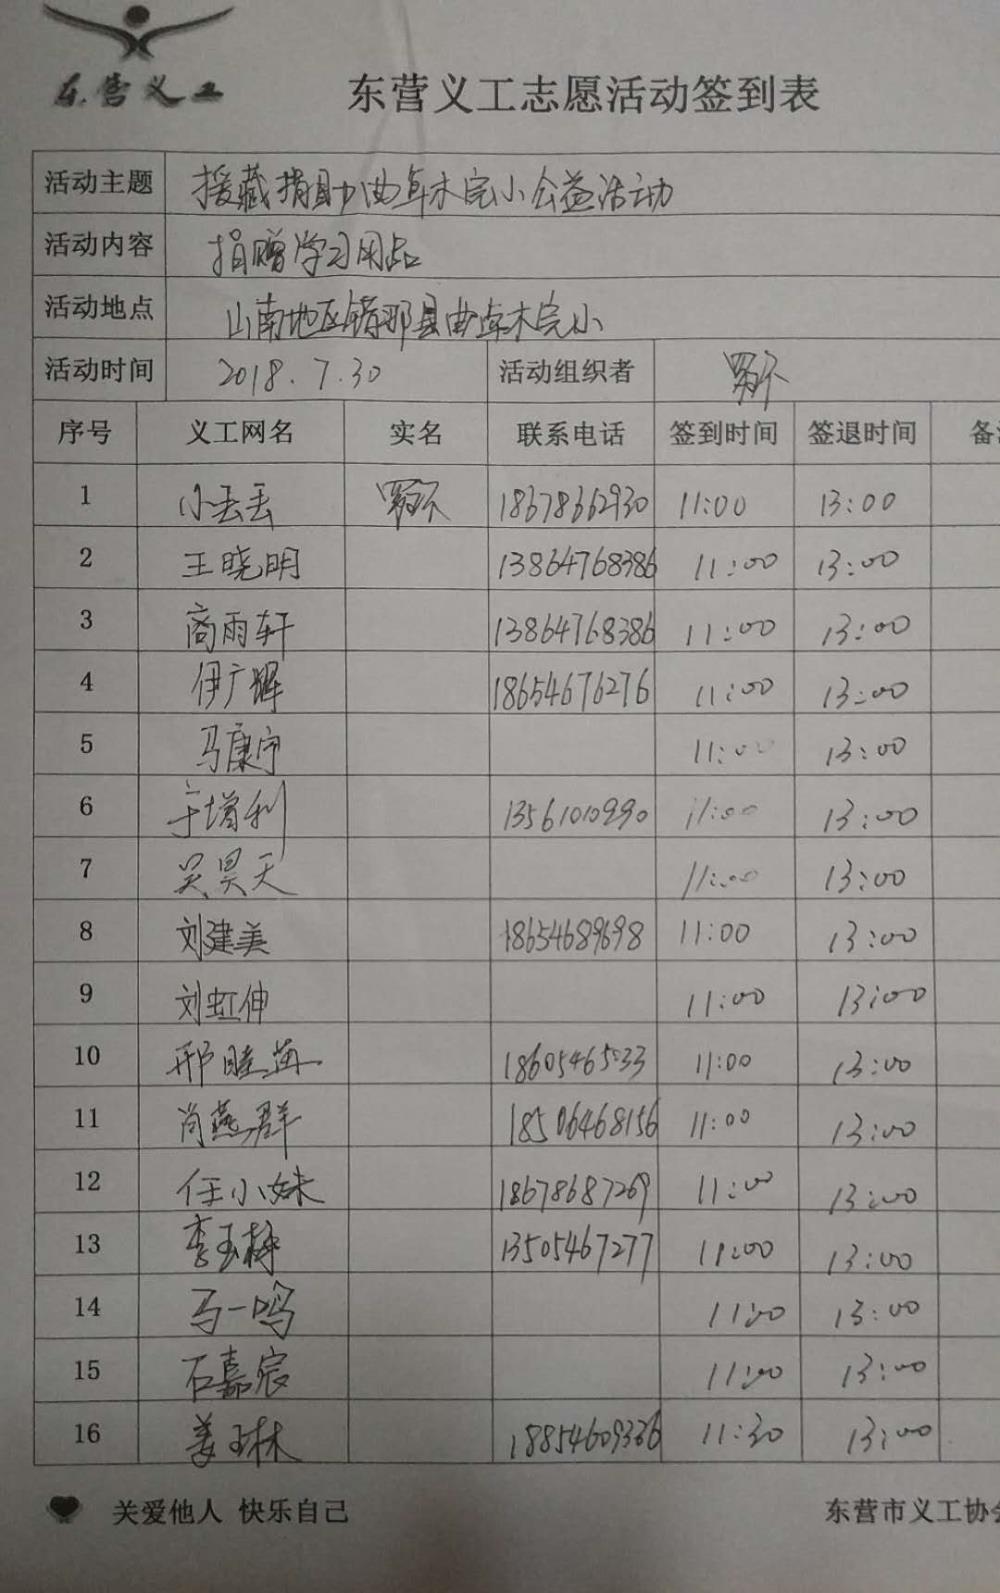 东营义工
东营义工志愿活动签到表
活动主题 援藏捐助曲卓木完小公益活动
活动内容 捐赠学习用品
活动地点 山南地区错那县曲卓木完小
活动时间 2018.7.30 活动组织者
序号 义工网名 实名 联系电话 签到时间 签退时间
1 小丢丢 18678662930 11:00 13:00
2 王晓明 13864768386 11:00 13:00
3 商雨轩 13864768386 11:00 13:00
4 伊广辉 18654676276 11:00 13:00
5 马康宇 11:00 13:00
6 于增利 13561010990 11:00 13:00
7 吴昊天 11:00 13:00
8 刘建美 18654689698 11:00 13:00
9 刘虹伸 11:00 13:00
10 11:00 13:00
11 肖燕群 18506468156 11:00 13:00
12 任小妹 18678687269 11:00 13:00
13 李玉梅 13505467277 11:00 13:00
14 马一鸣 11:00 13:00
15 石嘉宸 11:00 13:00
16 姜玉林 18854609336 11:30 13:00
关爱他人 快乐自己 东营市义工协会